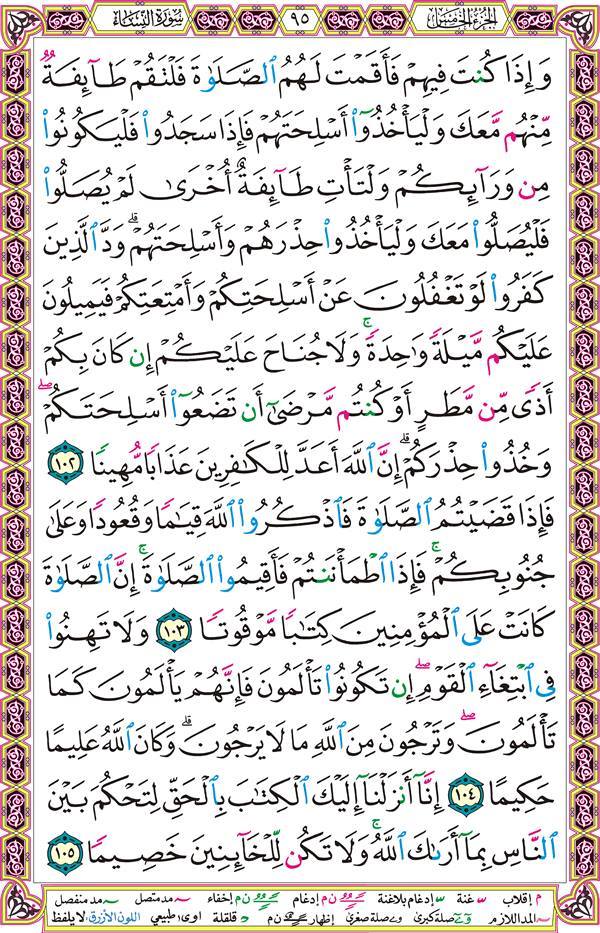 الجزء الخامس ٩٥ سورة النساء
وَإِذَا كُنتَ فِيهِمْ فَأَقَمْتَ لَهُمُ ٱلصَّلَوٰةَ فَلْتَقُمْ طَآئِفَةٌ
مِّنْهُم مَّعَكَ وَلْيَأْخُذُوٓا۟ أَسْلِحَتَهُمْ فَإِذَا سَجَدُوا۟ فَلْيَكُونُوا۟
مِن وَرَآئِكُمْ وَلْتَأْتِ طَآئِفَةٌ أُخْرَىٰ لَمْ يُصَلُّوا۟
فَلْيُصَلُّوا۟ مَعَكَ وَلْيَأْخُذُوا۟ حِذْرَهُمْ وَأَسْلِحَتَهُمْ ۗ وَدَّ ٱلَّذِينَ
كَفَرُوا۟ لَوْ تَغْفُلُونَ عَنْ أَسْلِحَتِكُمْ وَأَمْتِعَتِكُمْ فَيَمِيلُونَ
عَلَيْكُم مَّيْلَةً وَٰحِدَةً ۚ وَلَا جُنَاحَ عَلَيْكُمْ إِن كَانَ بِكُمْ
أَذًى مِّن مَّطَرٍ أَوْ كُنتُم مَّرْضَىٰٓ أَن تَضَعُوٓا۟ أَسْلِحَتَكُمْ ۖ
وَخُذُوا۟ حِذْرَكُمْ ۗ إِنَّ ٱللَّهَ أَعَدَّ لِلْكَٰفِرِينَ عَذَابًا مُّهِينًا ١٠٢
فَإِذَا قَضَيْتُمُ ٱلصَّلَوٰةَ فَٱذْكُرُوا۟ ٱللَّهَ قِيَٰمًا وَقُعُودًا وَعَلَىٰ
جُنُوبِكُمْ ۚ فَإِذَا ٱطْمَأْنَنتُمْ فَأَقِيمُوا۟ ٱلصَّلَوٰةَ ۚ إِنَّ ٱلصَّلَوٰةَ
كَانَتْ عَلَى ٱلْمُؤْمِنِينَ كِتَٰبًا مَّوْقُوتًا ١٠٣ وَلَا تَهِنُوا۟
فِى ٱبْتِغَآءِ ٱلْقَوْمِ ۖ إِن تَكُونُوا۟ تَأْلَمُونَ فَإِنَّهُمْ يَأْلَمُونَ كَمَا
تَأْلَمُونَ ۖ وَتَرْجُونَ مِنَ ٱللَّهِ مَا لَا يَرْجُونَ ۗ وَكَانَ ٱللَّهُ عَلِيمًا
حَكِيمًا ١٠٤ إِنَّآ أَنزَلْنَآ إِلَيْكَ ٱلْكِتَٰبَ بِٱلْحَقِّ لِتَحْكُمَ بَيْنَ
ٱلنَّاسِ بِمَآ أَرَىٰكَ ٱللَّهُ ۚ وَلَا تَكُن لِّلْخَآئِنِينَ خَصِيمًا ١٠٥
م إقلاب غنة إدغام بلاغنة ن م إدغام ن م إخفاء مد متصل مد منفصل
المد اللازم صلة كبرى صلة صغرى إظهار ن م قلقلة اوى طبيعي اللون الأزرق: لا يلفظ